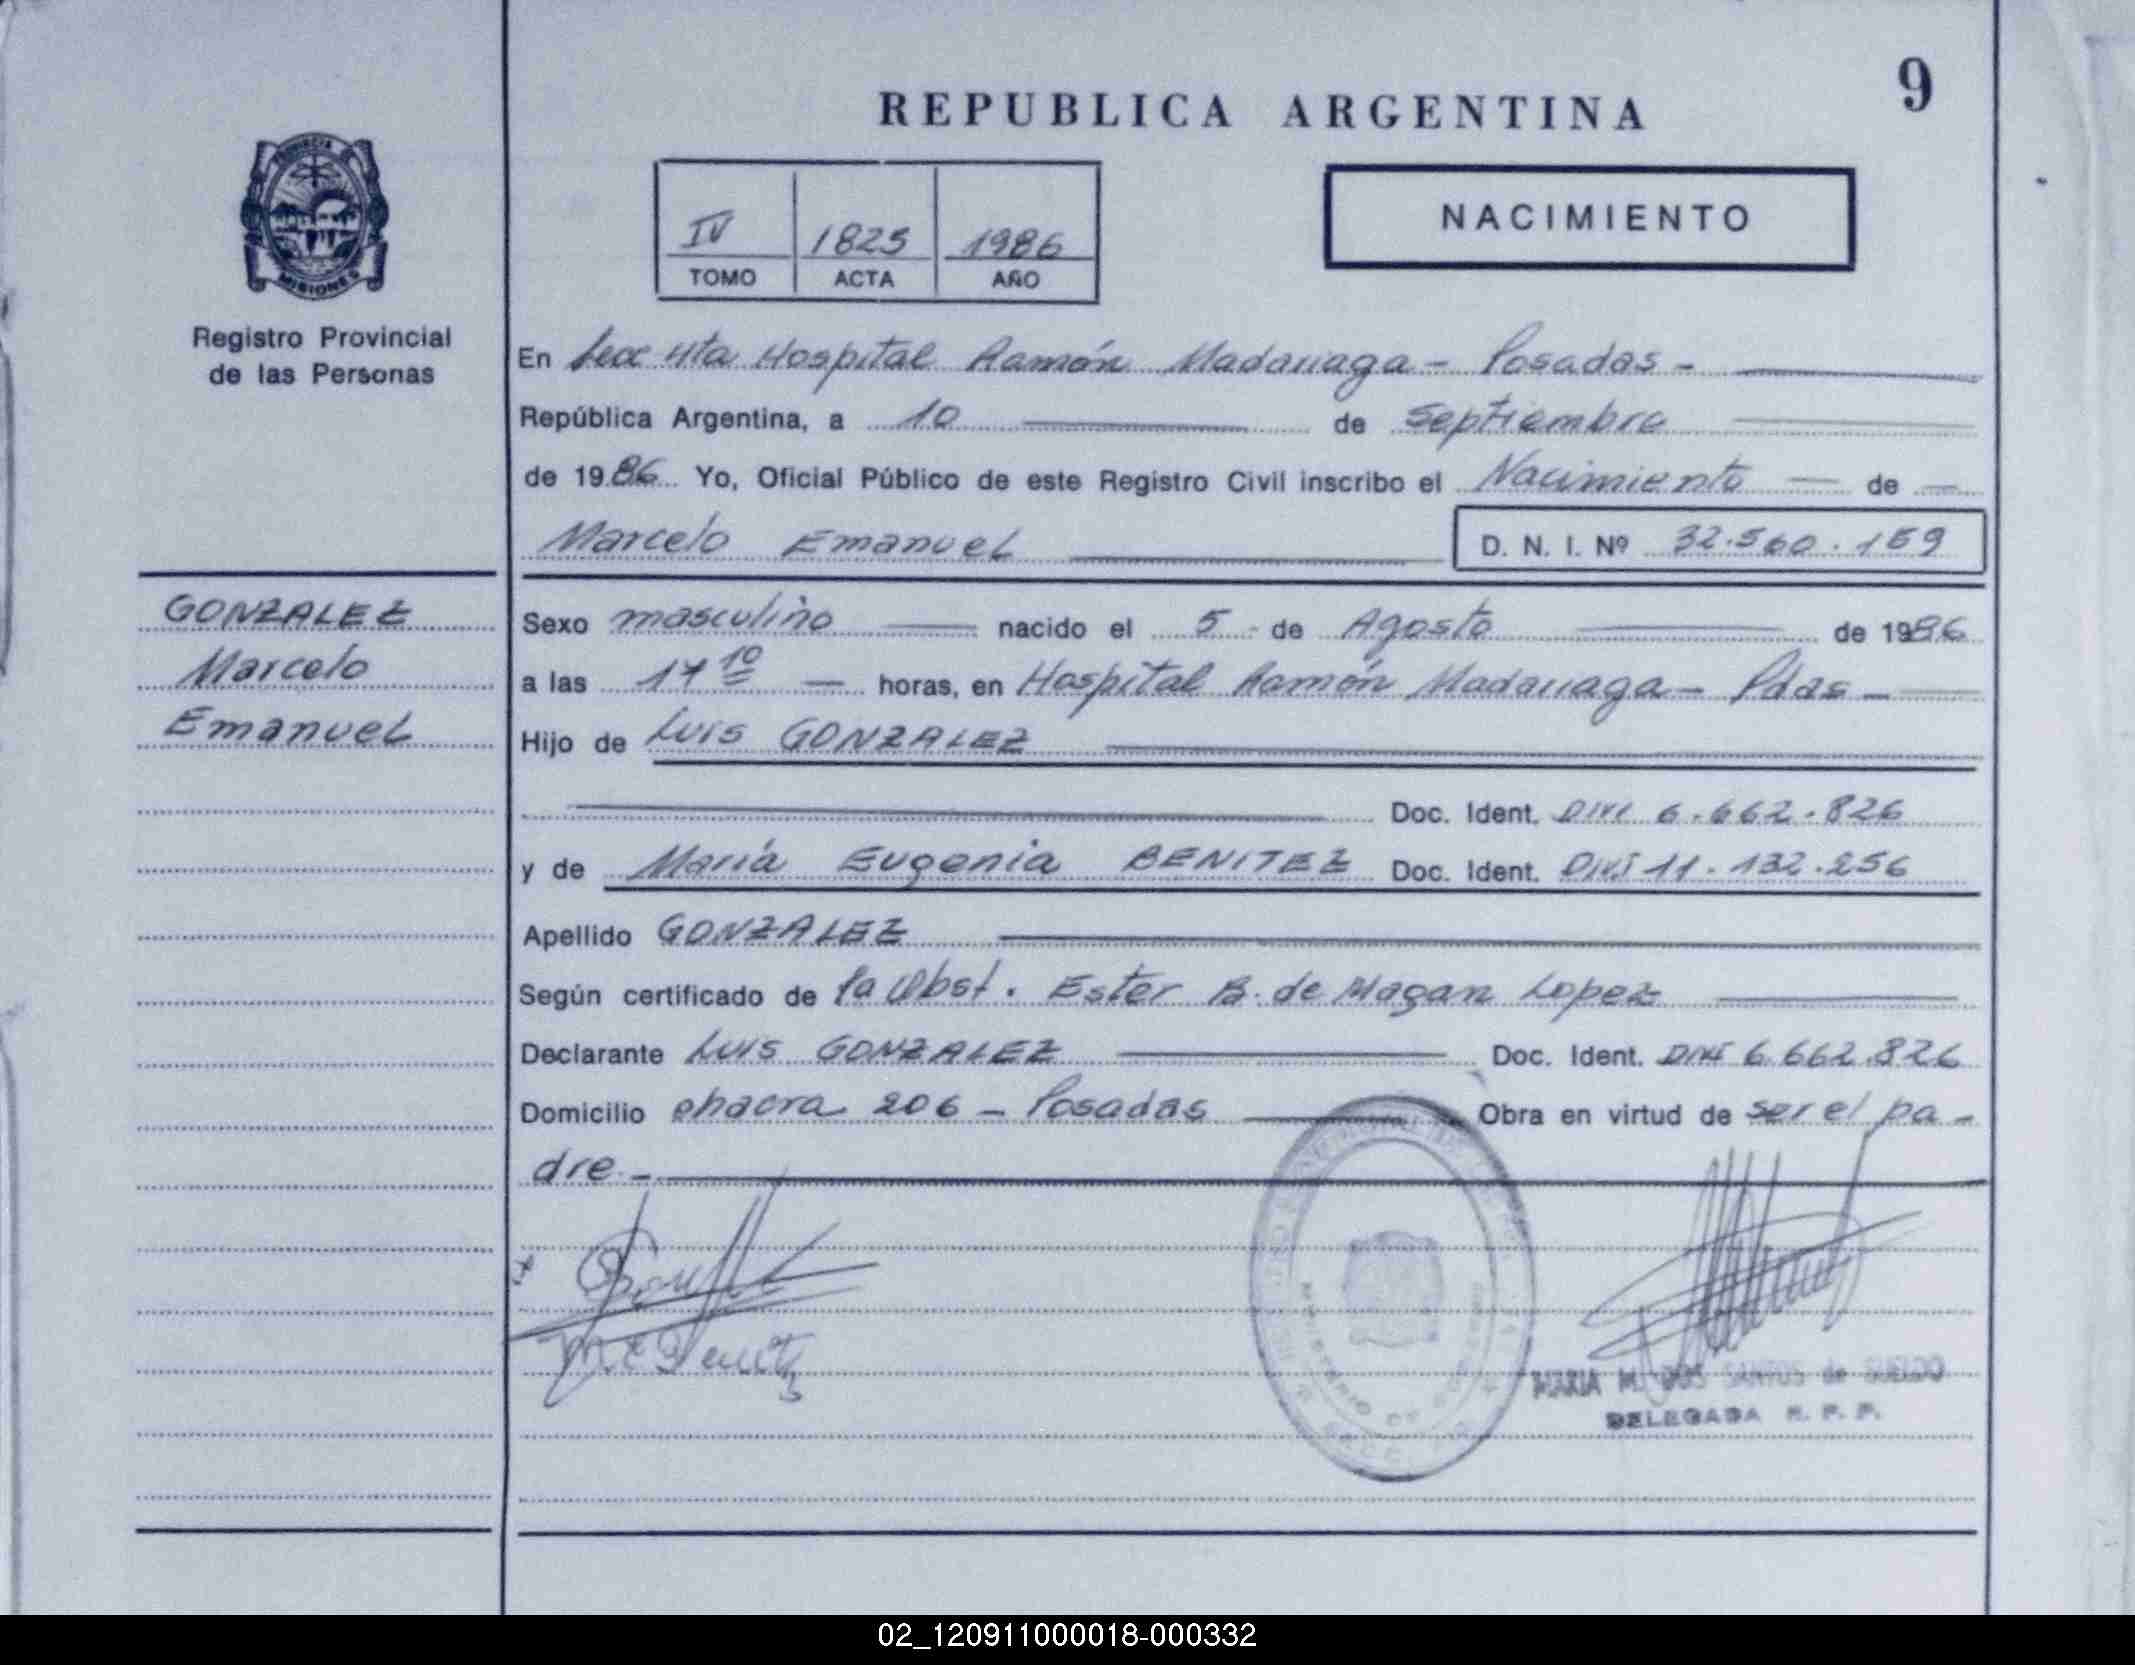 9
REPUBLICA ARGENTINA
PROVINCIA
MISIONES
Registro Provincial
de las Personas
NACIMIENTO
IV 1825 1986
TOMO ACTA AÑO
En Secc 4ta Hospital Ramón Madariaga - Posadas -
República Argentina, a 10 de Septiembre
de 1986 Yo, Oficial Público de este Registro Civil inscribo el Nacimiento de
Marcelo Emanuel D. N. I. Nº 32.560.159
GONZALEZ
Marcelo
Emanuel
Sexo masculino nacido el 5 de Agosto de 1986
a las 17 10 horas, en Hospital Ramón Madariaga - Pdas -
Hijo de Luis GONZALEZ
Doc. Ident. DNI 6.662.826
y de María Eugenia BENITEZ Doc. Ident. DNI 11.132.256
Apellido GONZALEZ
Según certificado de la Obst. Ester B. de Magan Lopez
Declarante Luis GONZALEZ Doc. Ident. DNI 6.662.826
Domicilio chacra 206 - Posadas Obra en virtud de ser el pa-
dre -
MARIA M. DOS SANTOS de
DELEGADA R. P. P.
02_120911000018-000332